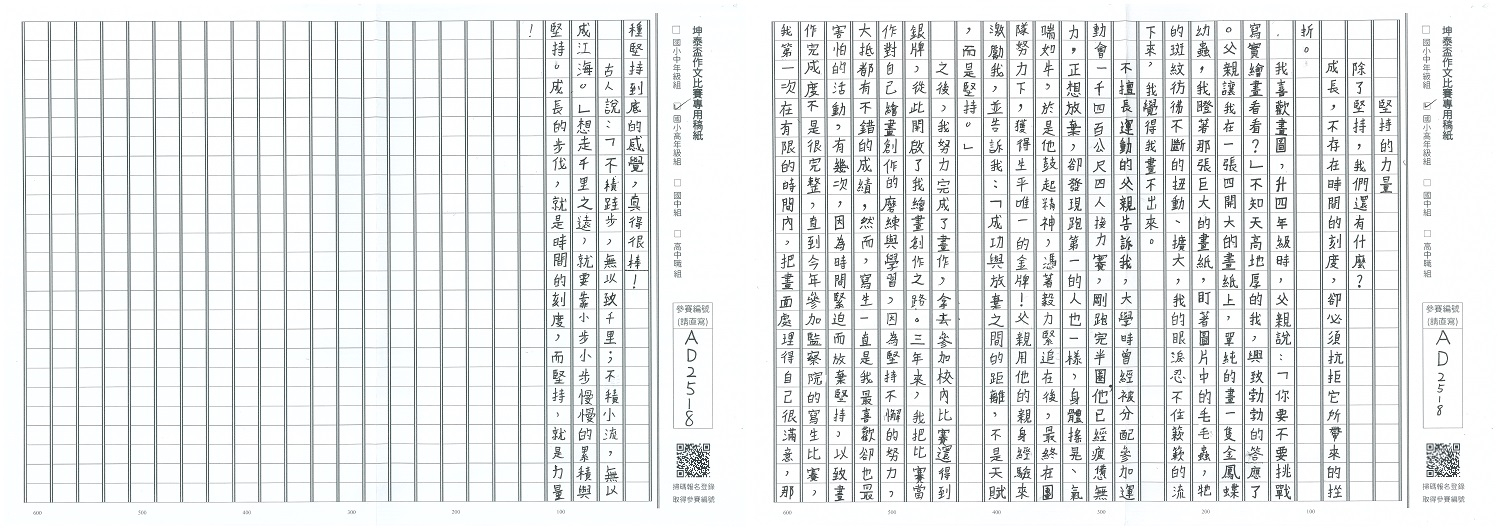 坤泰盃作文比賽專用稿紙
□ 國小中年級組 ☑ 國小高年級組 □ 國中組 □ 高中職組
參賽編號
(請直寫)
AD2518
掃碼報名登錄
取得參賽編號
堅持的力量
除了堅持，我們還有什麼？
成長，不存在時間的刻度，卻必須抗拒它所帶來的挫
折。
我喜歡畫圖，升四年級時，父親說：「你要不要挑戰
寫實繪畫看看？」不知天高地厚的我，興致勃勃的答應了
。父親讓我在一張四開大的畫紙上，單純的畫一隻金鳳蝶
幼蟲，我瞪著那張巨大的畫紙，盯著圖片中的毛毛蟲，牠
的斑紋彷彿不斷的扭動、擴大，我的眼淚忍不住簌簌的流
下來，我覺得我畫不出來。
不擅長運動的父親告訴我，大學時曾經被分配參加運
動會一千四百公尺四人接力賽，剛跑完半圈，他已經疲憊無
力，正想放棄，卻發現跑第一的人也一樣，身體搖晃、氣
喘如牛，於是他鼓起精神，憑著毅力緊追在後，最終在團
隊努力下，獲得生平唯一的金牌！父親用他的親身經驗來
激勵我，並告訴我：「成功與放棄之間的距離，不是天賦
，而是堅持。」
之後，我努力完成了畫作，拿去參加校內比賽還得到
銀牌，從此開啟了我繪畫創作之路。三年來，我把比賽當
作對自己繪畫創作的磨練與學習，因為堅持不懈的努力，
大抵都有不錯的成績，然而，寫生一直是我最喜歡卻也最
害怕的活動，有幾次，因為時間緊迫而放棄堅持，以致畫
作完成度不是很完整，直到今年參加監察院的寫生比賽，
我第一次在有限的時間內，把畫面處理得自己很滿意，那
100
200
300
400
500
600
坤泰盃作文比賽專用稿紙
□ 國小中年級組 ☑ 國小高年級組 □ 國中組 □ 高中職組
參賽編號
(請直寫)
AD2518
掃碼報名登錄
取得參賽編號
種堅持到底的感覺，真得很棒！
古人說：「不積跬步，無以致千里；不積小流，無以
成江海。」想走千里之遠，就要靠小步小步慢慢的累積與
堅持。成長的步伐，就是時間的刻度，而堅持，就是力量
！
100
200
300
400
500
600